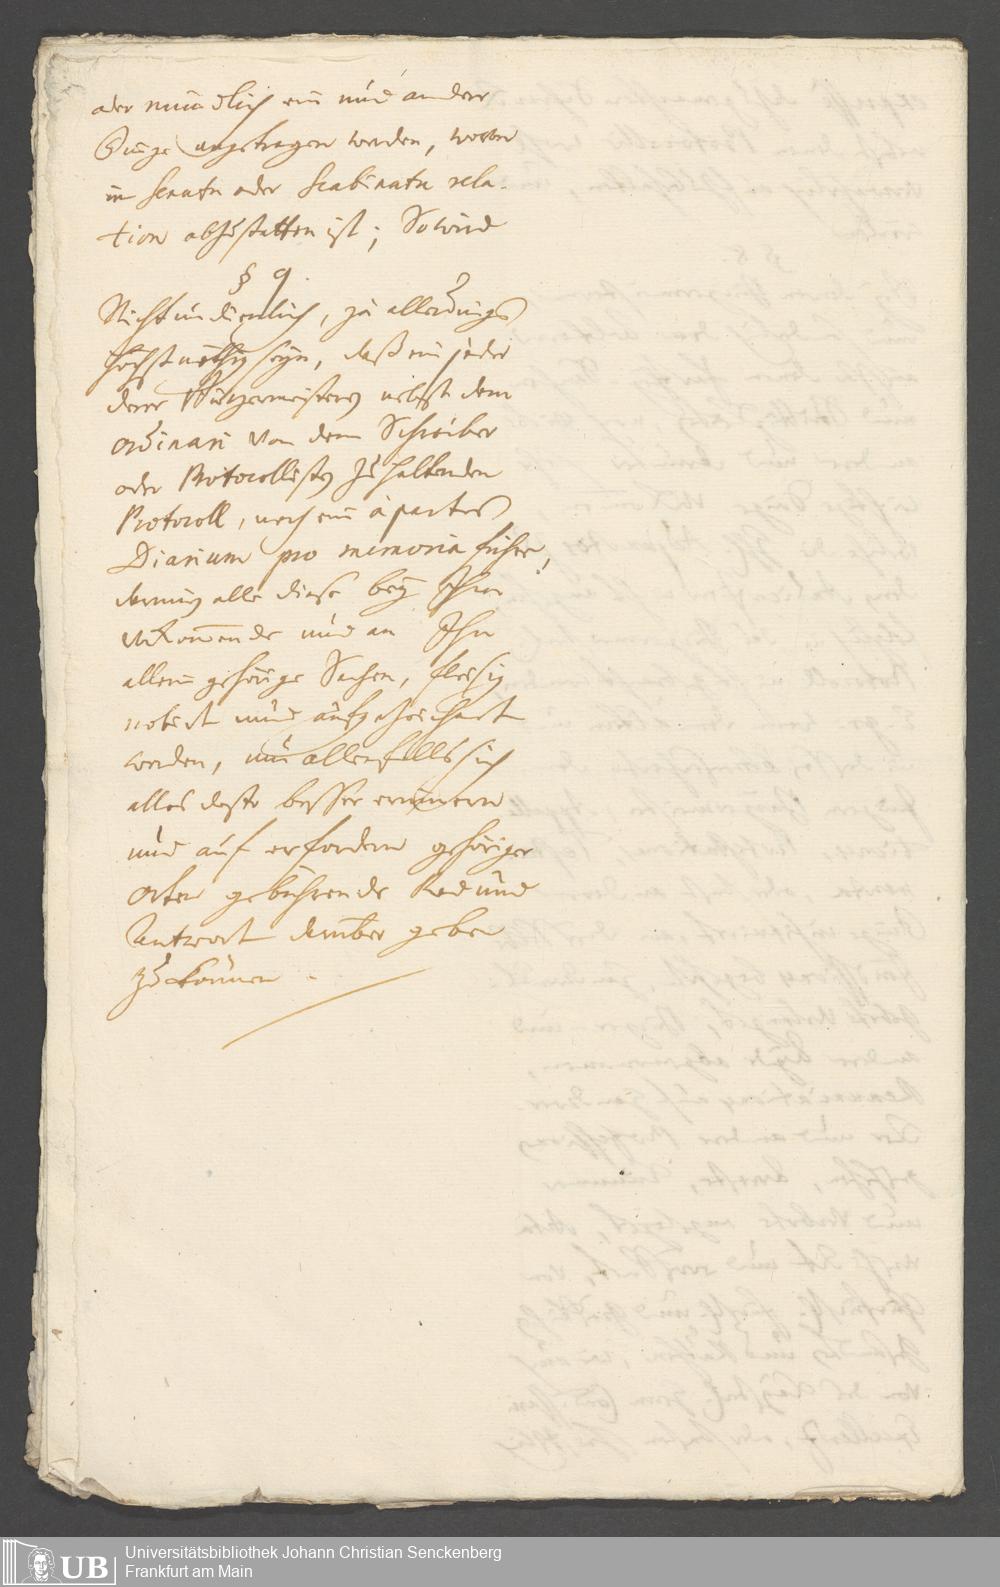 oder mündlich ein und andere
Dinge angetragen werden, wovon
in Senatu oder Scabinatu rela-
tion abzustatten ist; So wird
§ 9.
Nicht undienlich, ja allerdings
höchst nöthig seyn, daß ein jeder
derer Bürgermeistern nebst dem
ordinari von dem Schreiber
oder Protocollisten zu haltenden
Protocoll, noch ein à partes
Diarium pro memoria führe,
darinn alle diese bey Ihm
vorkom̅ende und an Ihn
allein gehörige Sachen, fleisig
notirt und aufgezeichnet
werden, um allenfalls sich
alles desto besser erinnern
und auf erfordern gehöriger
Orten gebührende Red und
Antwort darüber geben
zu können.
UB Universitätsbibliothek Johann Christian Senckenberg
Frankfurt am Main